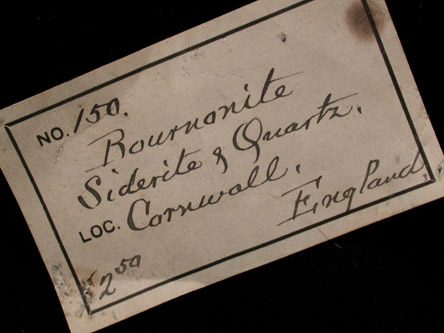 NO. 150.
Bournonite
Siderite & Quartz.
LOC. Cornwall.
England.
2 50